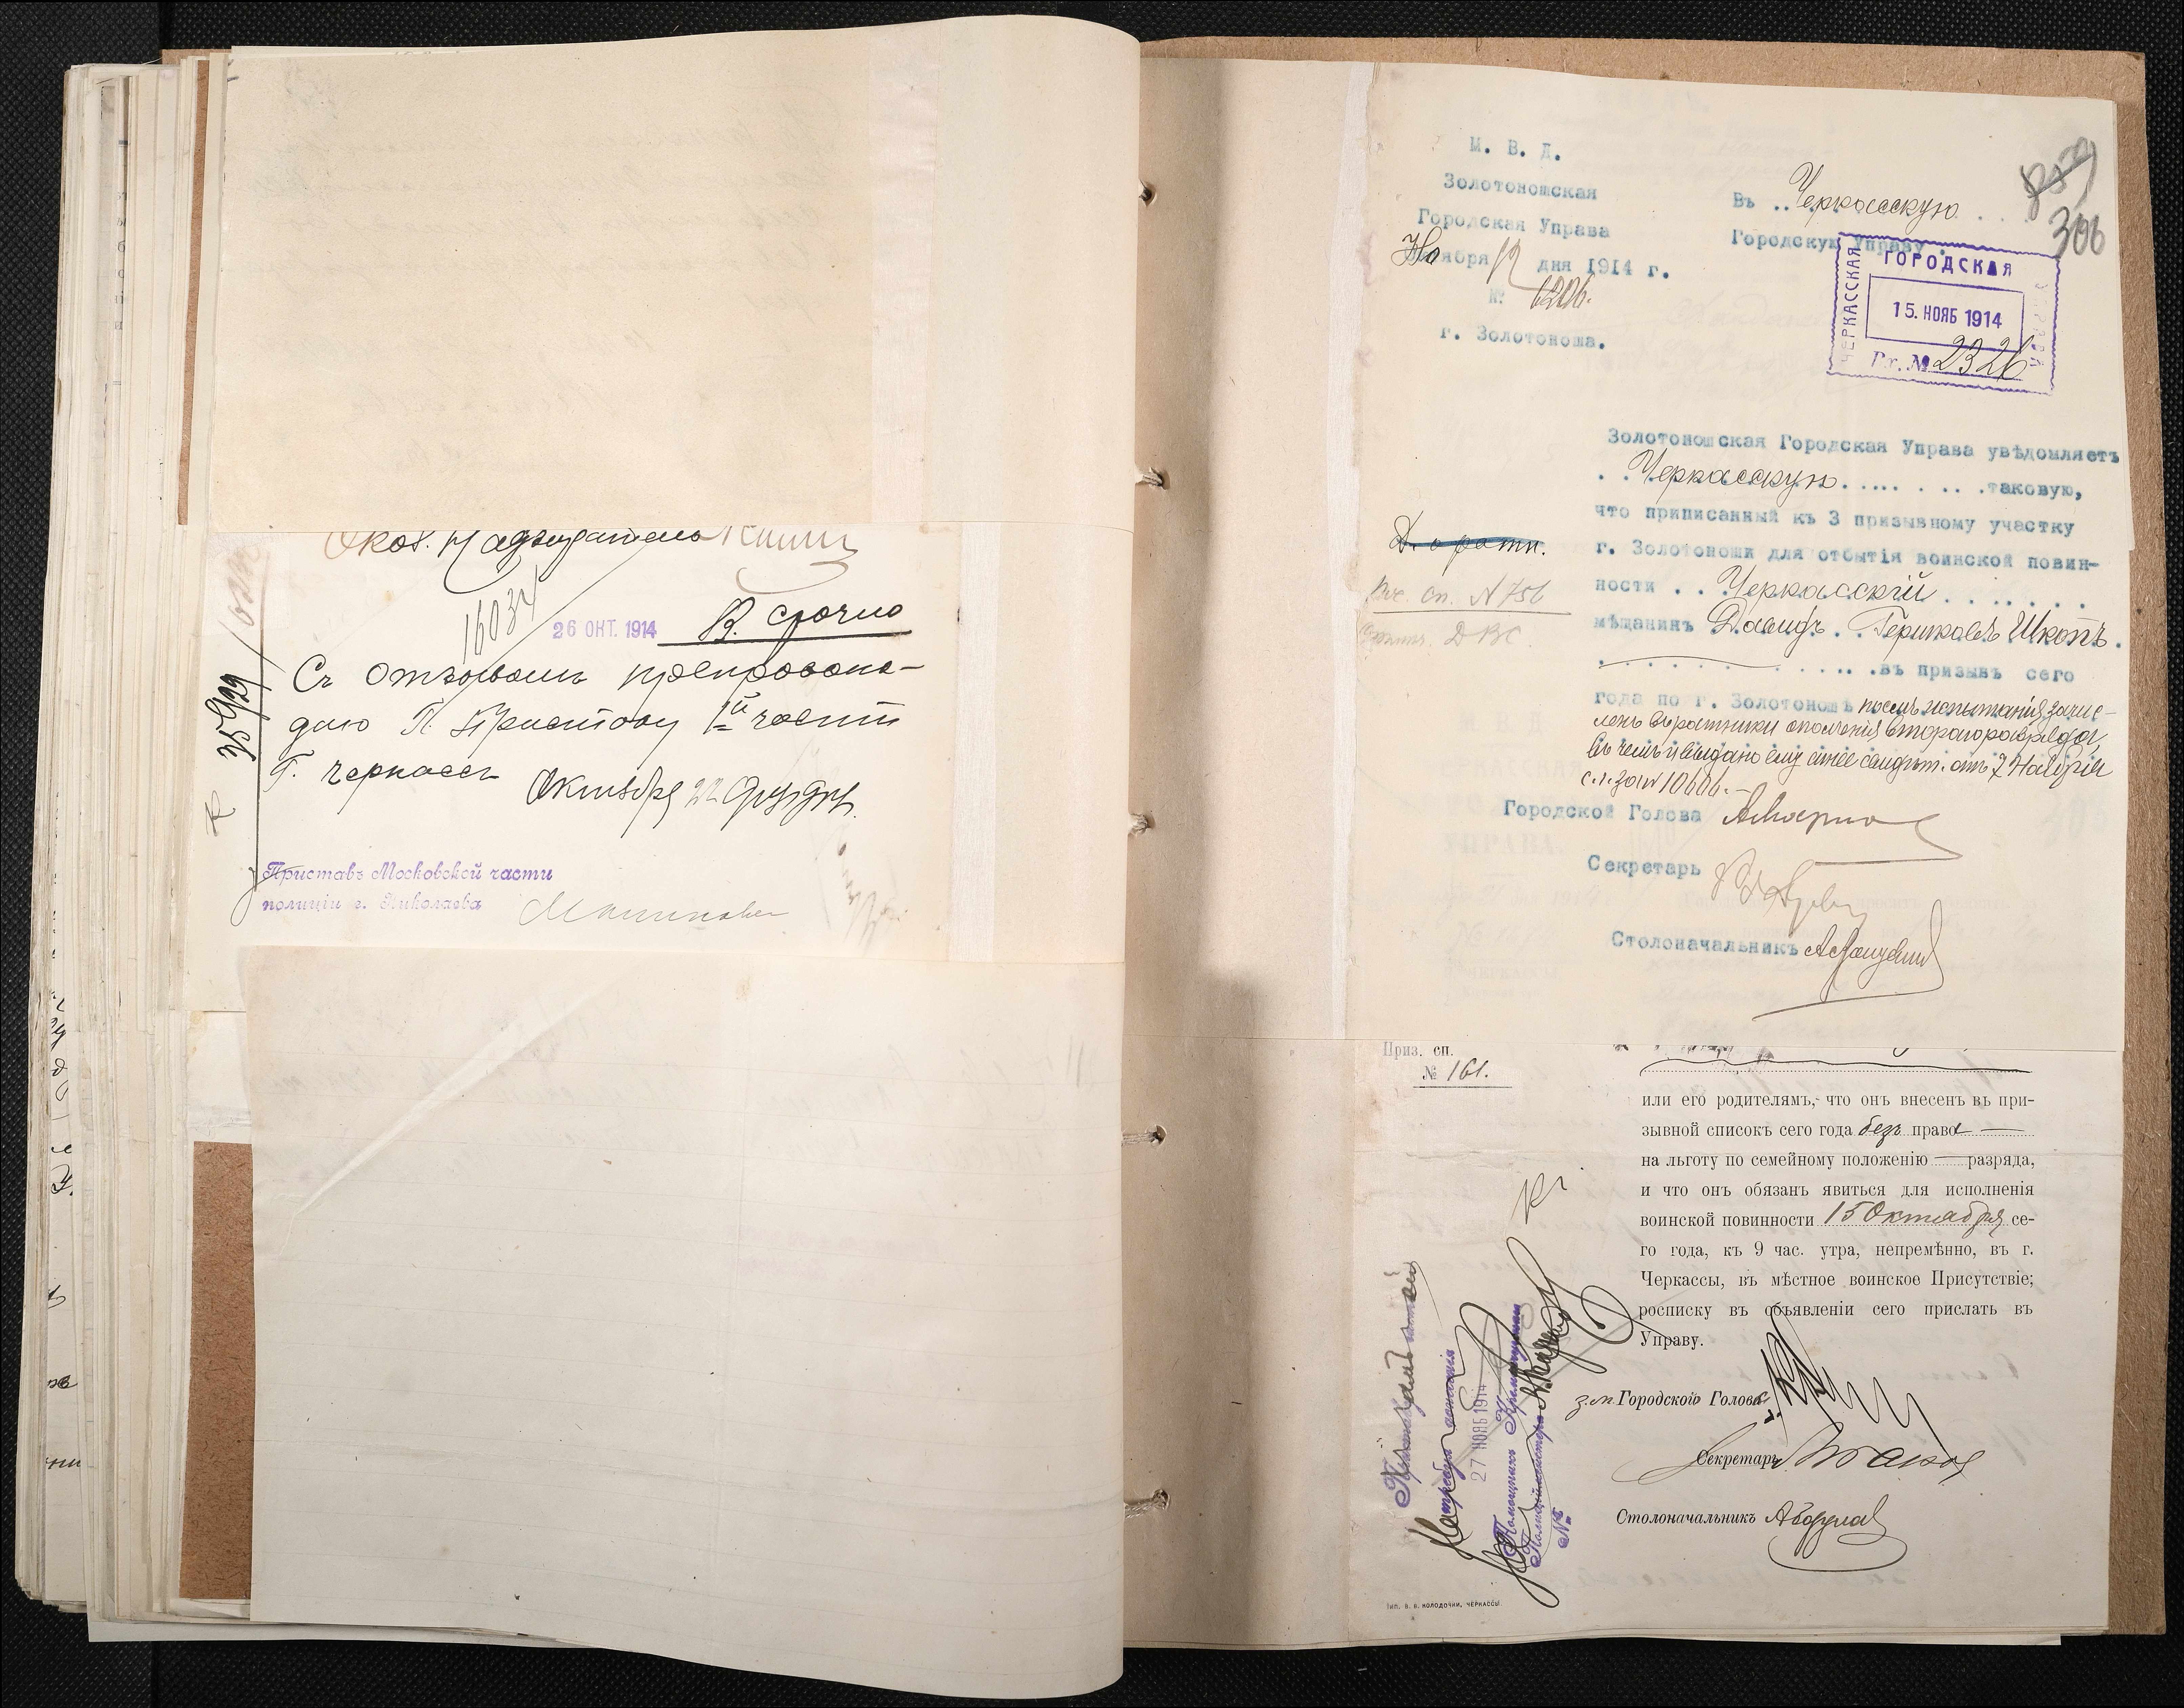 Окол. Надзиратель
26 ОКТ. 1914
В. срочно
Съ отзывомъ препровож-
даю Г. Приставу 1й части
г. Черкассъ
Октября 22 дня
Приставъ Московской части
полиціи г. Николаева
М. В. Д.
Золотоношская
Городская Управа
Ноября 12 дня 1914 г.
№ 6206.
г. Золотоноша.
Въ .. Черкасскую . .
Городскую Управу.
306
ЧЕРКАССКАЯ
ГОРОДСКАЯ
УПРАВА
15. НОЯБ 1914
Вх. № 2326
Золотоношская Городская Управа увѣдомляетъ
. . Черкасскую . . . . . . . . . таковую,
что приписанный къ 3 призывному участку
г. Золотоноши для отбытія воинской повин-
ности . . Черкасскій . . . . . . .
мѣщанинъ Давидъ . . Гершковъ Шкопъ .
. . . . . . . . . . . . . въ призывъ сего
года по г. Золотоношѣ послѣ испытанія зачис-
ленъ въ ратники ополченія второго разряда,
въ чемъ и выдано ему синее свидѣт. отъ 7 Ноября
с. г. за № 10606.
Д. о ратн.
Пос. сп. № 756
Городской Голова
Секретарь
Столоначальникъ
Приз. сп.
№ 161.
или его родителямъ, что онъ внесенъ въ при-
зывной списокъ сего года безъ права —
на льготу по семейному положенію — разряда,
и что онъ обязанъ явиться для исполненія
воинской повинности 15 Октября се-
го года, къ 9 час. утра, непремѣнно, въ г.
Черкассы, въ мѣстное воинское Присутствіе;
росписку въ объявленіи сего прислать въ
Управу.
з.м. Городской Голова
Секретарь
Столоначальникъ
27 НОЯБ 1914
№
Тип. В. В. КОЛОДОЧКИ, ЧЕРКАССЫ.